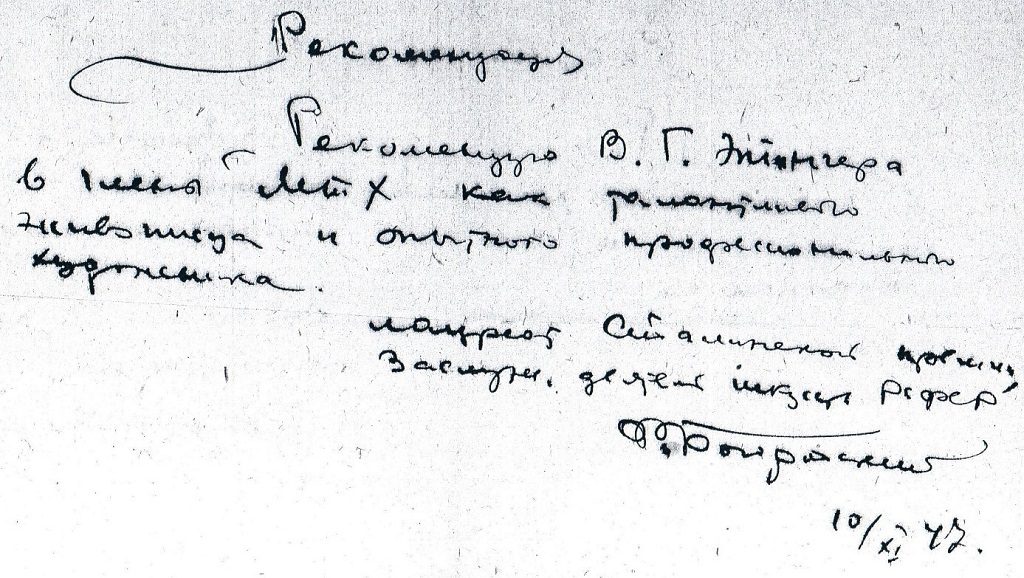 Рекомендация
Рекомендую В. Г. Эттингера
в члены МТХ как талантливого
живописца и опытного профессионального
художника.
лауреат Сталинской премии,
Заслуж. деятель искусств РСФСР
10/XI 47.